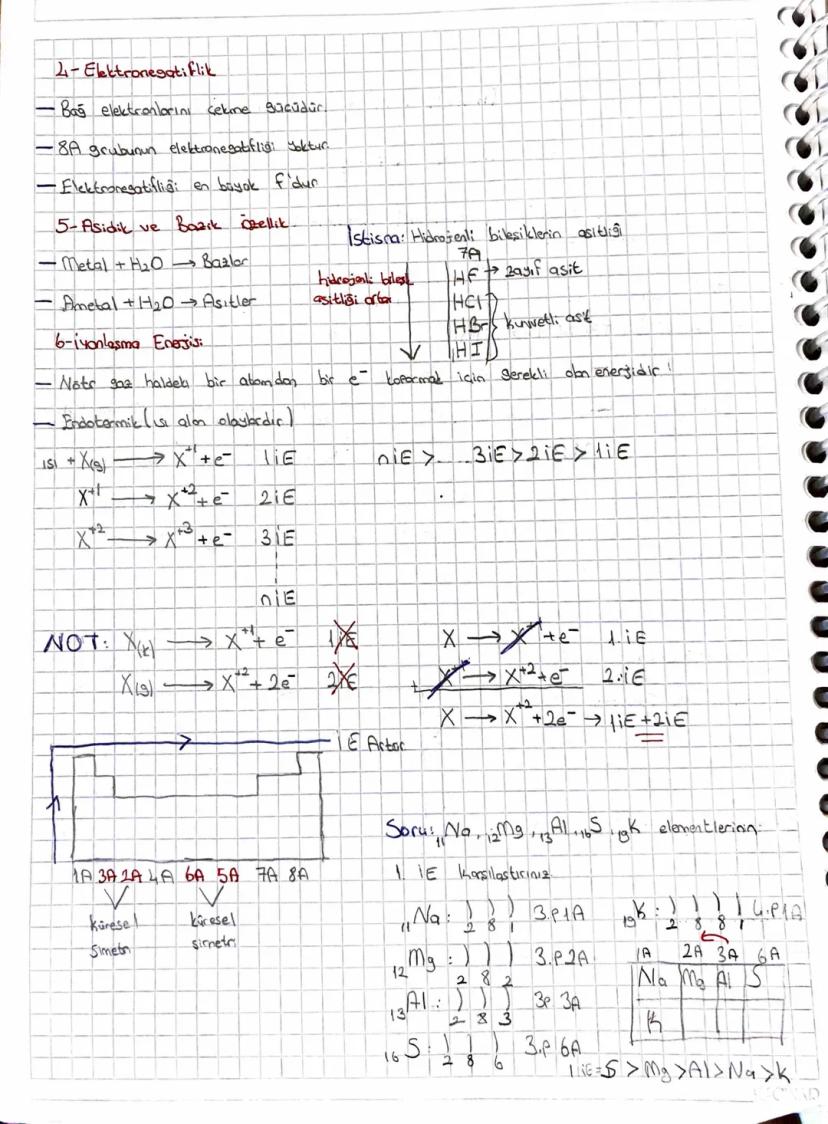 4-Elektronegatiflik
- Bağ elektronlarını çekme gücüdür.
- 8A grubunun elektronegatifliği yoktur.
- Elektronegatifliği en büyük F'dur
5-Asidik ve Bazik özellik
- Metal + H₂O → Bazlar
- Ametal + H₂O → Asitler
İstisna: Hidrojenli bileşiklerin asitliği
7A
hidrojenli bileşi
asitliği artar
HF → zayıf asit
HCl
HBr
HI
kuvvetli asit
6-iyonlaşma Enerjisi
- Nötr gaz haldeki bir atomdan bir e⁻ koparmak için gerekli olan enerjidir!
- Endotermik (ısı alan olaylardır)
ısı + X(g) → X⁺¹ + e⁻ 1iE
X⁺¹ → X⁺² + e⁻ 2iE
X⁺² → X⁺³ + e⁻ 3iE
niE
niE > .... 3iE > 2iE > 1iE
NOT: X(k) → X⁺¹ + e⁻ 1iE
X(g) → X⁺² + 2e⁻ 2iE
X → X⁺¹ + e⁻ 1.iE
+ X⁺¹ → X⁺² + e⁻ 2.iE
X → X⁺² + 2e⁻ → 1iE + 2iE
iE Artar
1A 3A 2A 4A 6A 5A 7A 8A
Küresel
Simetri
Küresel
simetri
Soru: ₁₁Na, ₁₂Mg, ₁₃Al, ₁₆S, ₁₉K elementlerinin
1. iE Karşılaştırınız
₁₁Na: ) ) ) 3.P1A
2 8 1
₁₂Mg: ) ) ) 3.P2A
2 8 2
₁₃Al: ) ) ) 3P 3A
2 8 3
₁₆S: ) ) ) 3.P 6A
2 8 6
₁₉K: ) ) ) ) 4.P1A
2 8 8 1
1A 2A 3A 6A
Na Mg Al S
K
1iE = S > Mg > Al > Na > K